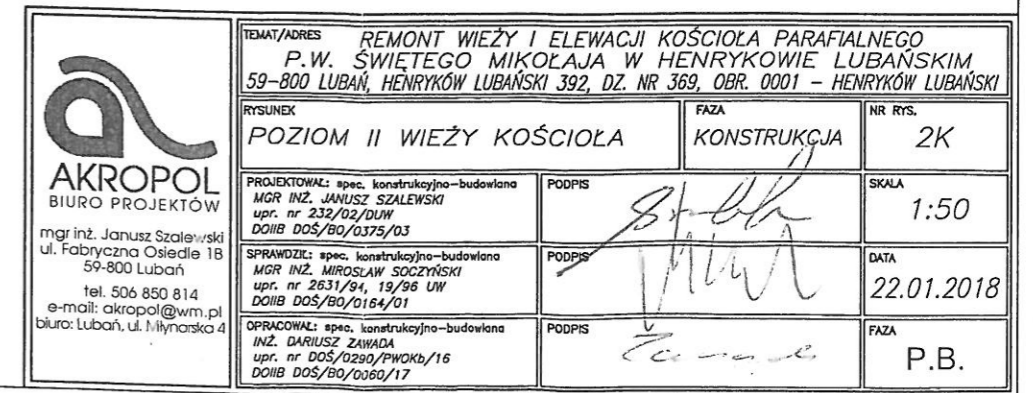 AKROPOL
BIURO PROJEKTÓW
mgr inż. Janusz Szalewski
ul. Fabryczna Osiedle 1B
59-800 Lubań
tel. 506 850 814
e-mail: akropol@wm.pl
biuro: Lubań, ul. Młynarska 4
TEMAT/ADRES REMONT WIEŻY I ELEWACJI KOŚCIOŁA PARAFIALNEGO
P.W. ŚWIĘTEGO MIKOŁAJA W HENRYKOWIE LUBAŃSKIM
59-800 LUBAŃ, HENRYKÓW LUBAŃSKI 392, DZ. NR 369, OBR. 0001 - HENRYKÓW LUBAŃSKI
RYSUNEK
POZIOM II WIEŻY KOŚCIOŁA
FAZA
KONSTRUKCJA
NR RYS.
2K
PROJEKTOWAŁ: spec. konstrukcyjno-budowlana
MGR INŻ. JANUSZ SZALEWSKI
upr. nr 232/02/DUW
DOIIB DOŚ/BO/0375/03
PODPIS
SKALA
1:50
SPRAWDZIŁ: spec. konstrukcyjno-budowlana
MGR INŻ. MIROSŁAW SOCZYŃSKI
upr. nr 2631/94, 19/96 UW
DOIIB DOŚ/BO/0164/01
PODPIS
DATA
22.01.2018
OPRACOWAŁ: spec. konstrukcyjno-budowlana
INŻ. DARIUSZ ZAWADA
upr. nr DOŚ/0290/PWOKb/16
DOIIB DOŚ/BO/0060/17
PODPIS
FAZA
P.B.